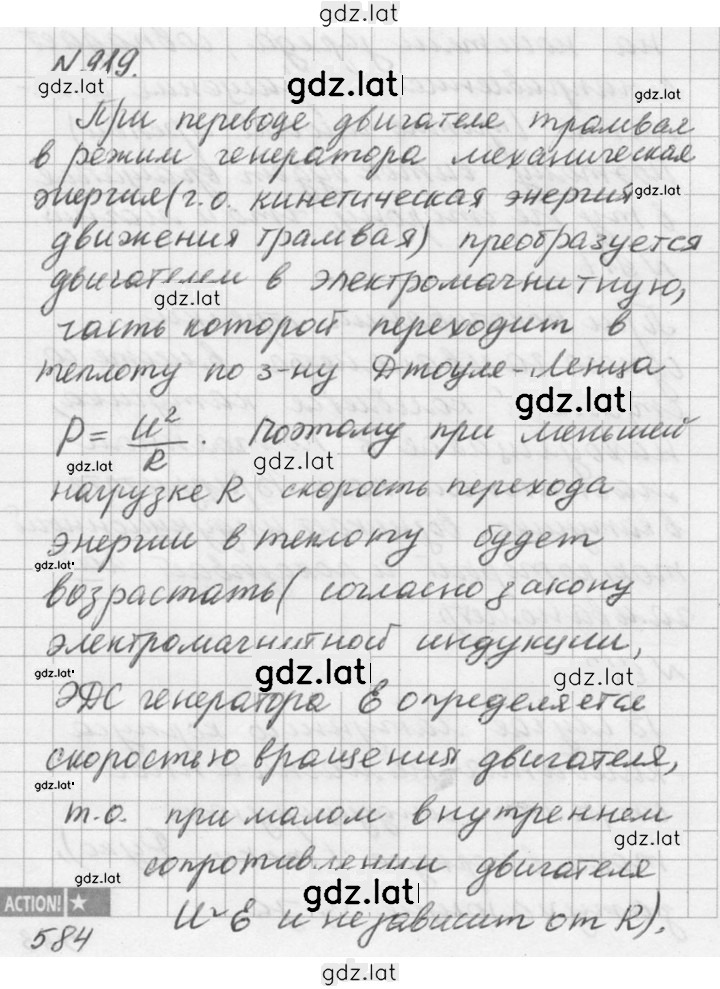 gdz.lat
N 919.
gdz.lat
gdz.lat
gdz.lat
При переводе двигателе трамвая
в режим генератора механическая
энергия (т.о. кинетическая энергия
gdz.lat
движения трамвая) преобразуется
двигателем в электромагнитную,
gdz.lat
часть которой переходит в
теплоту по з-ну Джоуля-Ленца
gdz.lat
P = U²/R . Поэтому при меньшей
gdz.lat
gdz.lat
нагрузке R скорость перехода
энергии в теплоту будет
gdz.lat
возрастать (согласно закону
электромагнитной индукции,
gdz.lat
gdz.lat
gdz.lat
ЭДС генератора Ɛ определяется
скоростью вращения двигателя,
gdz.lat
т.о. при малом внутреннем
gdz.lat
сопротивлении двигателя
gdz.lat
gdz.lat
ACTION!
U~Ɛ и не зависит от R).
584
gdz.lat